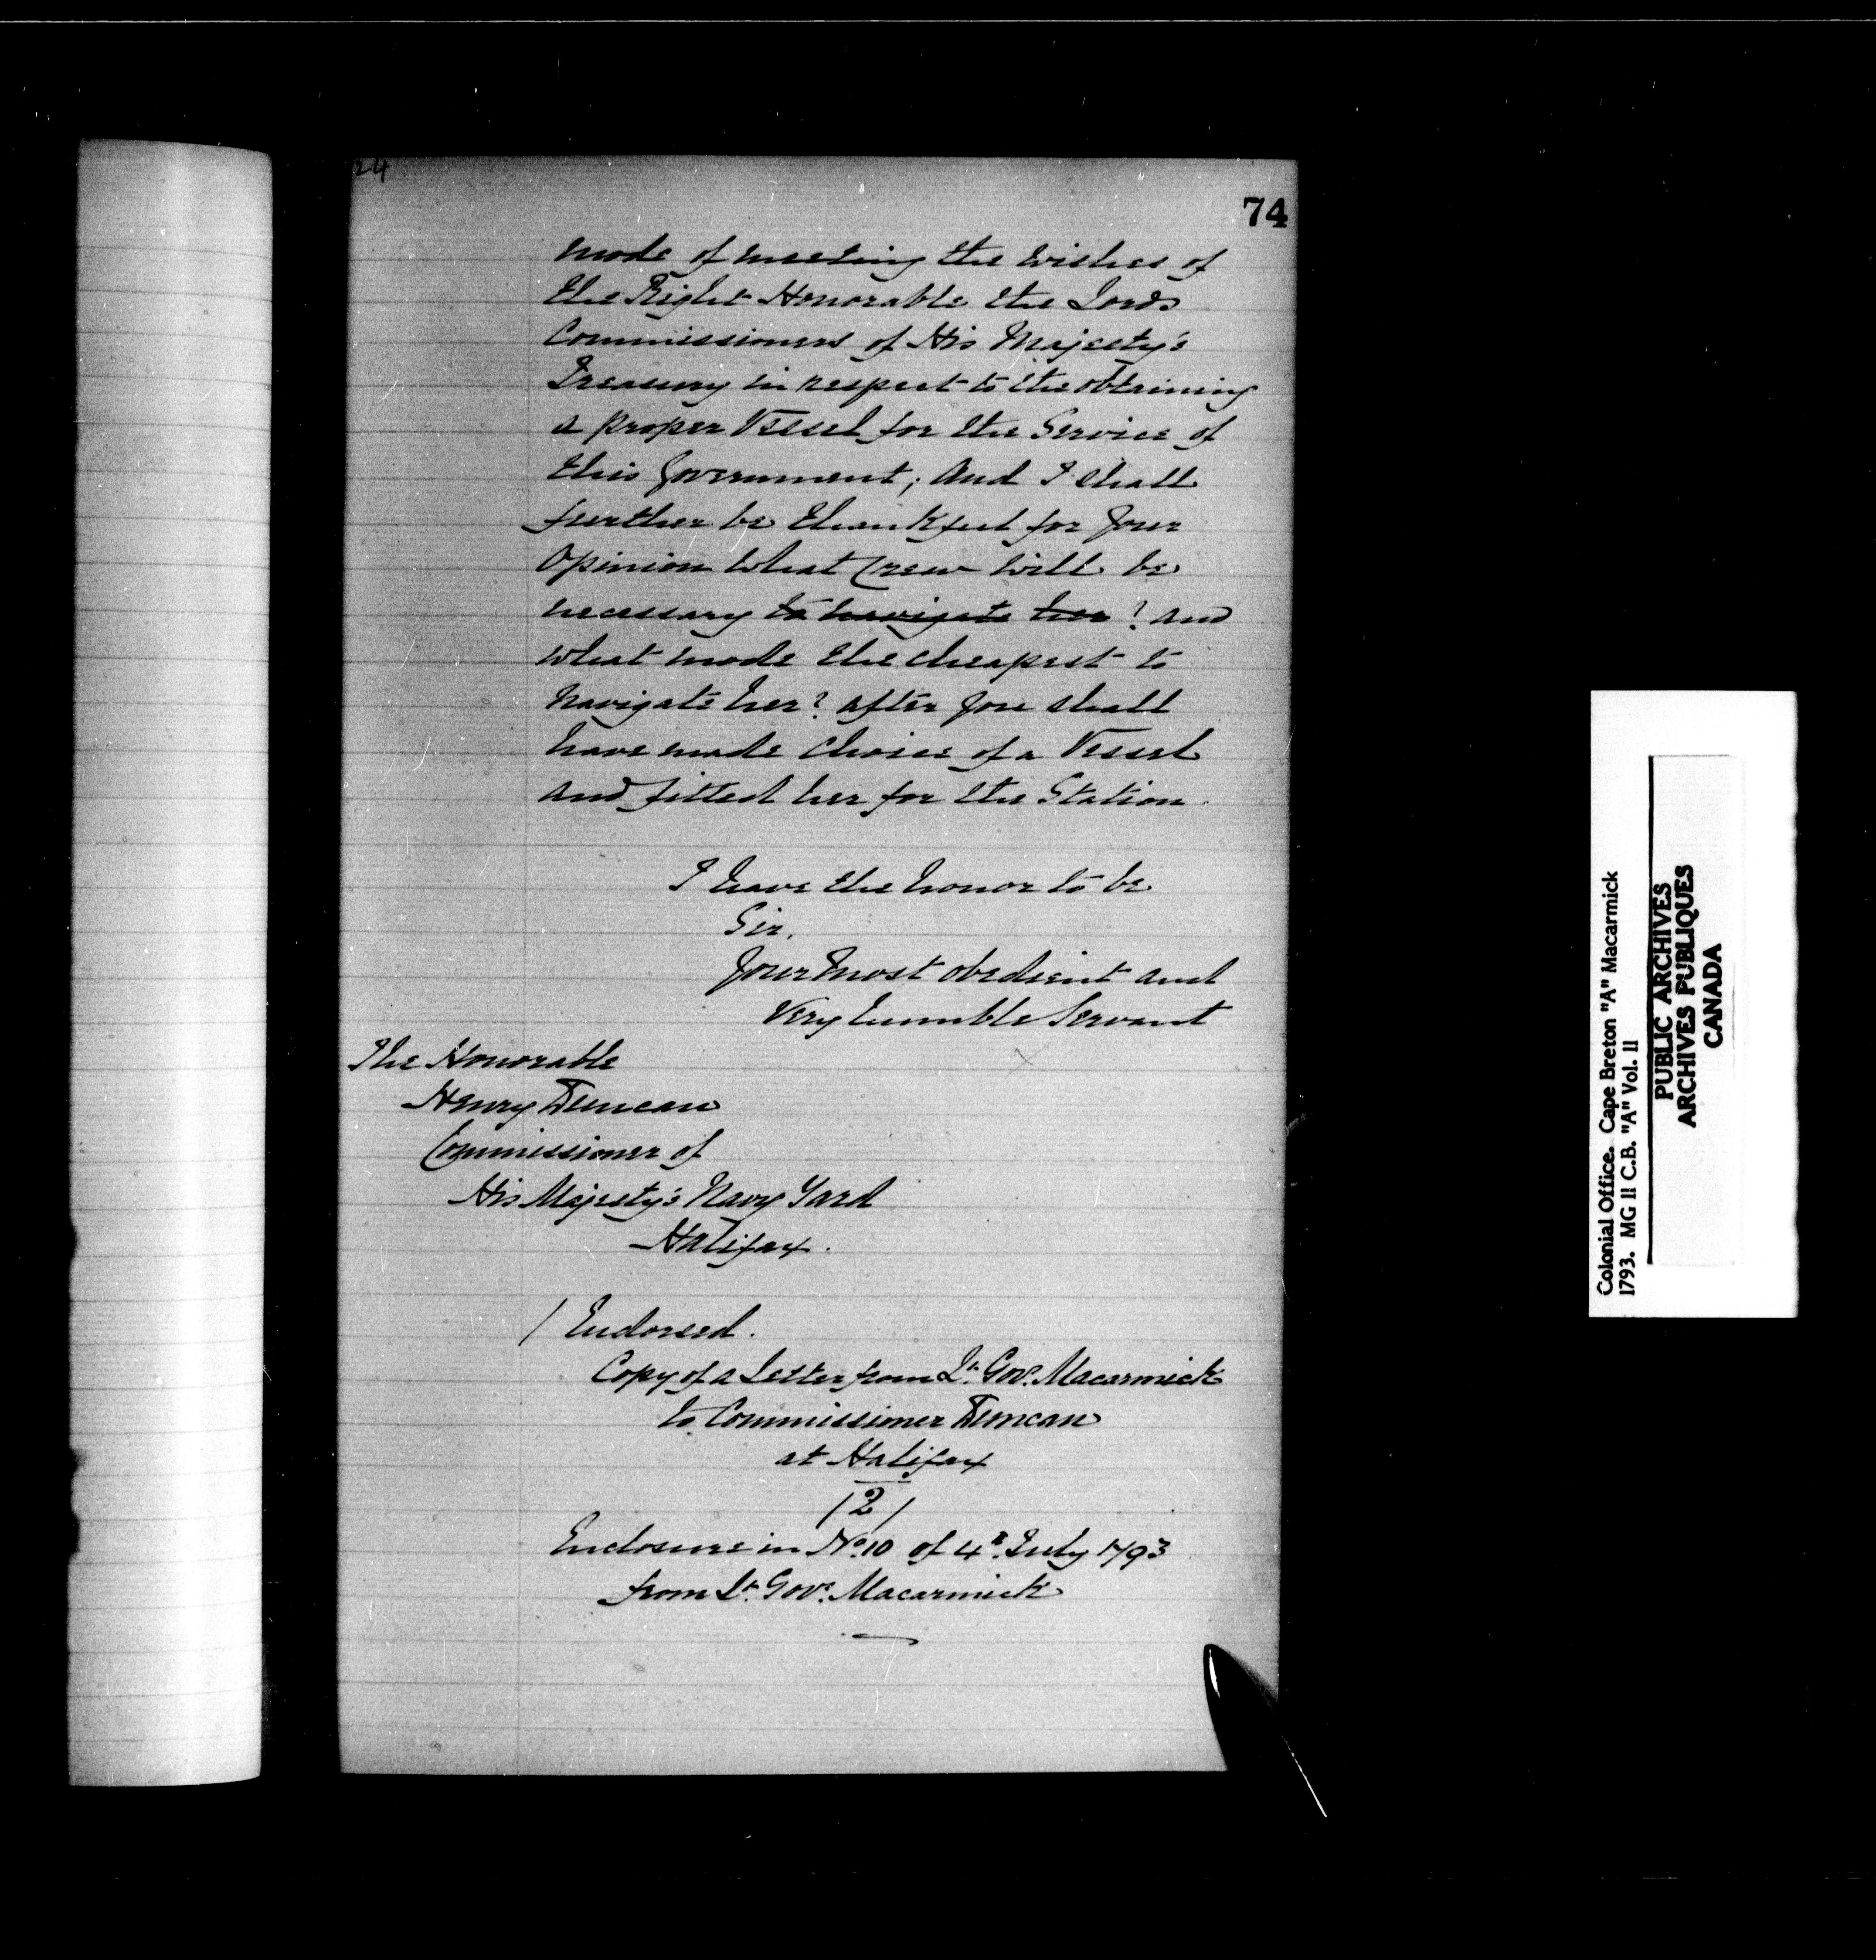 24
74
mode of meeting the wishes of
the Right Honorable the Lords
Commissioners of His Majesty's
Treasury in respect to the obtaining
a proper Vessel for the Service of
this Government; And I shall
further be thankful for Your
Opinion what Crew will be
necessary to navigate her? and
what mode the cheapest to
Navigate her? after you shall
have made choice of a Vessel
and fitted her for the Station.
I have the honor to be
Sir,
Your most obedient and
Very humble Servant
The Honorable
Henry Duncan
Commissioner of
His Majesty's Navy Yard
Halifax.
/ Endorsed.
Copy of a Letter from Lt. Govr. Macarmick
to Commissioner Duncan
at Halifax
/ 2 /
Enclosure in No. 10 of 4th. July 1793
from Lt. Govr. Macarmick
Colonial Office. Cape Breton "A" Macarmick
1793. MG 11 C.B. "A" Vol. 11
PUBLIC ARCHIVES
ARCHIVES PUBLIQUES
CANADA